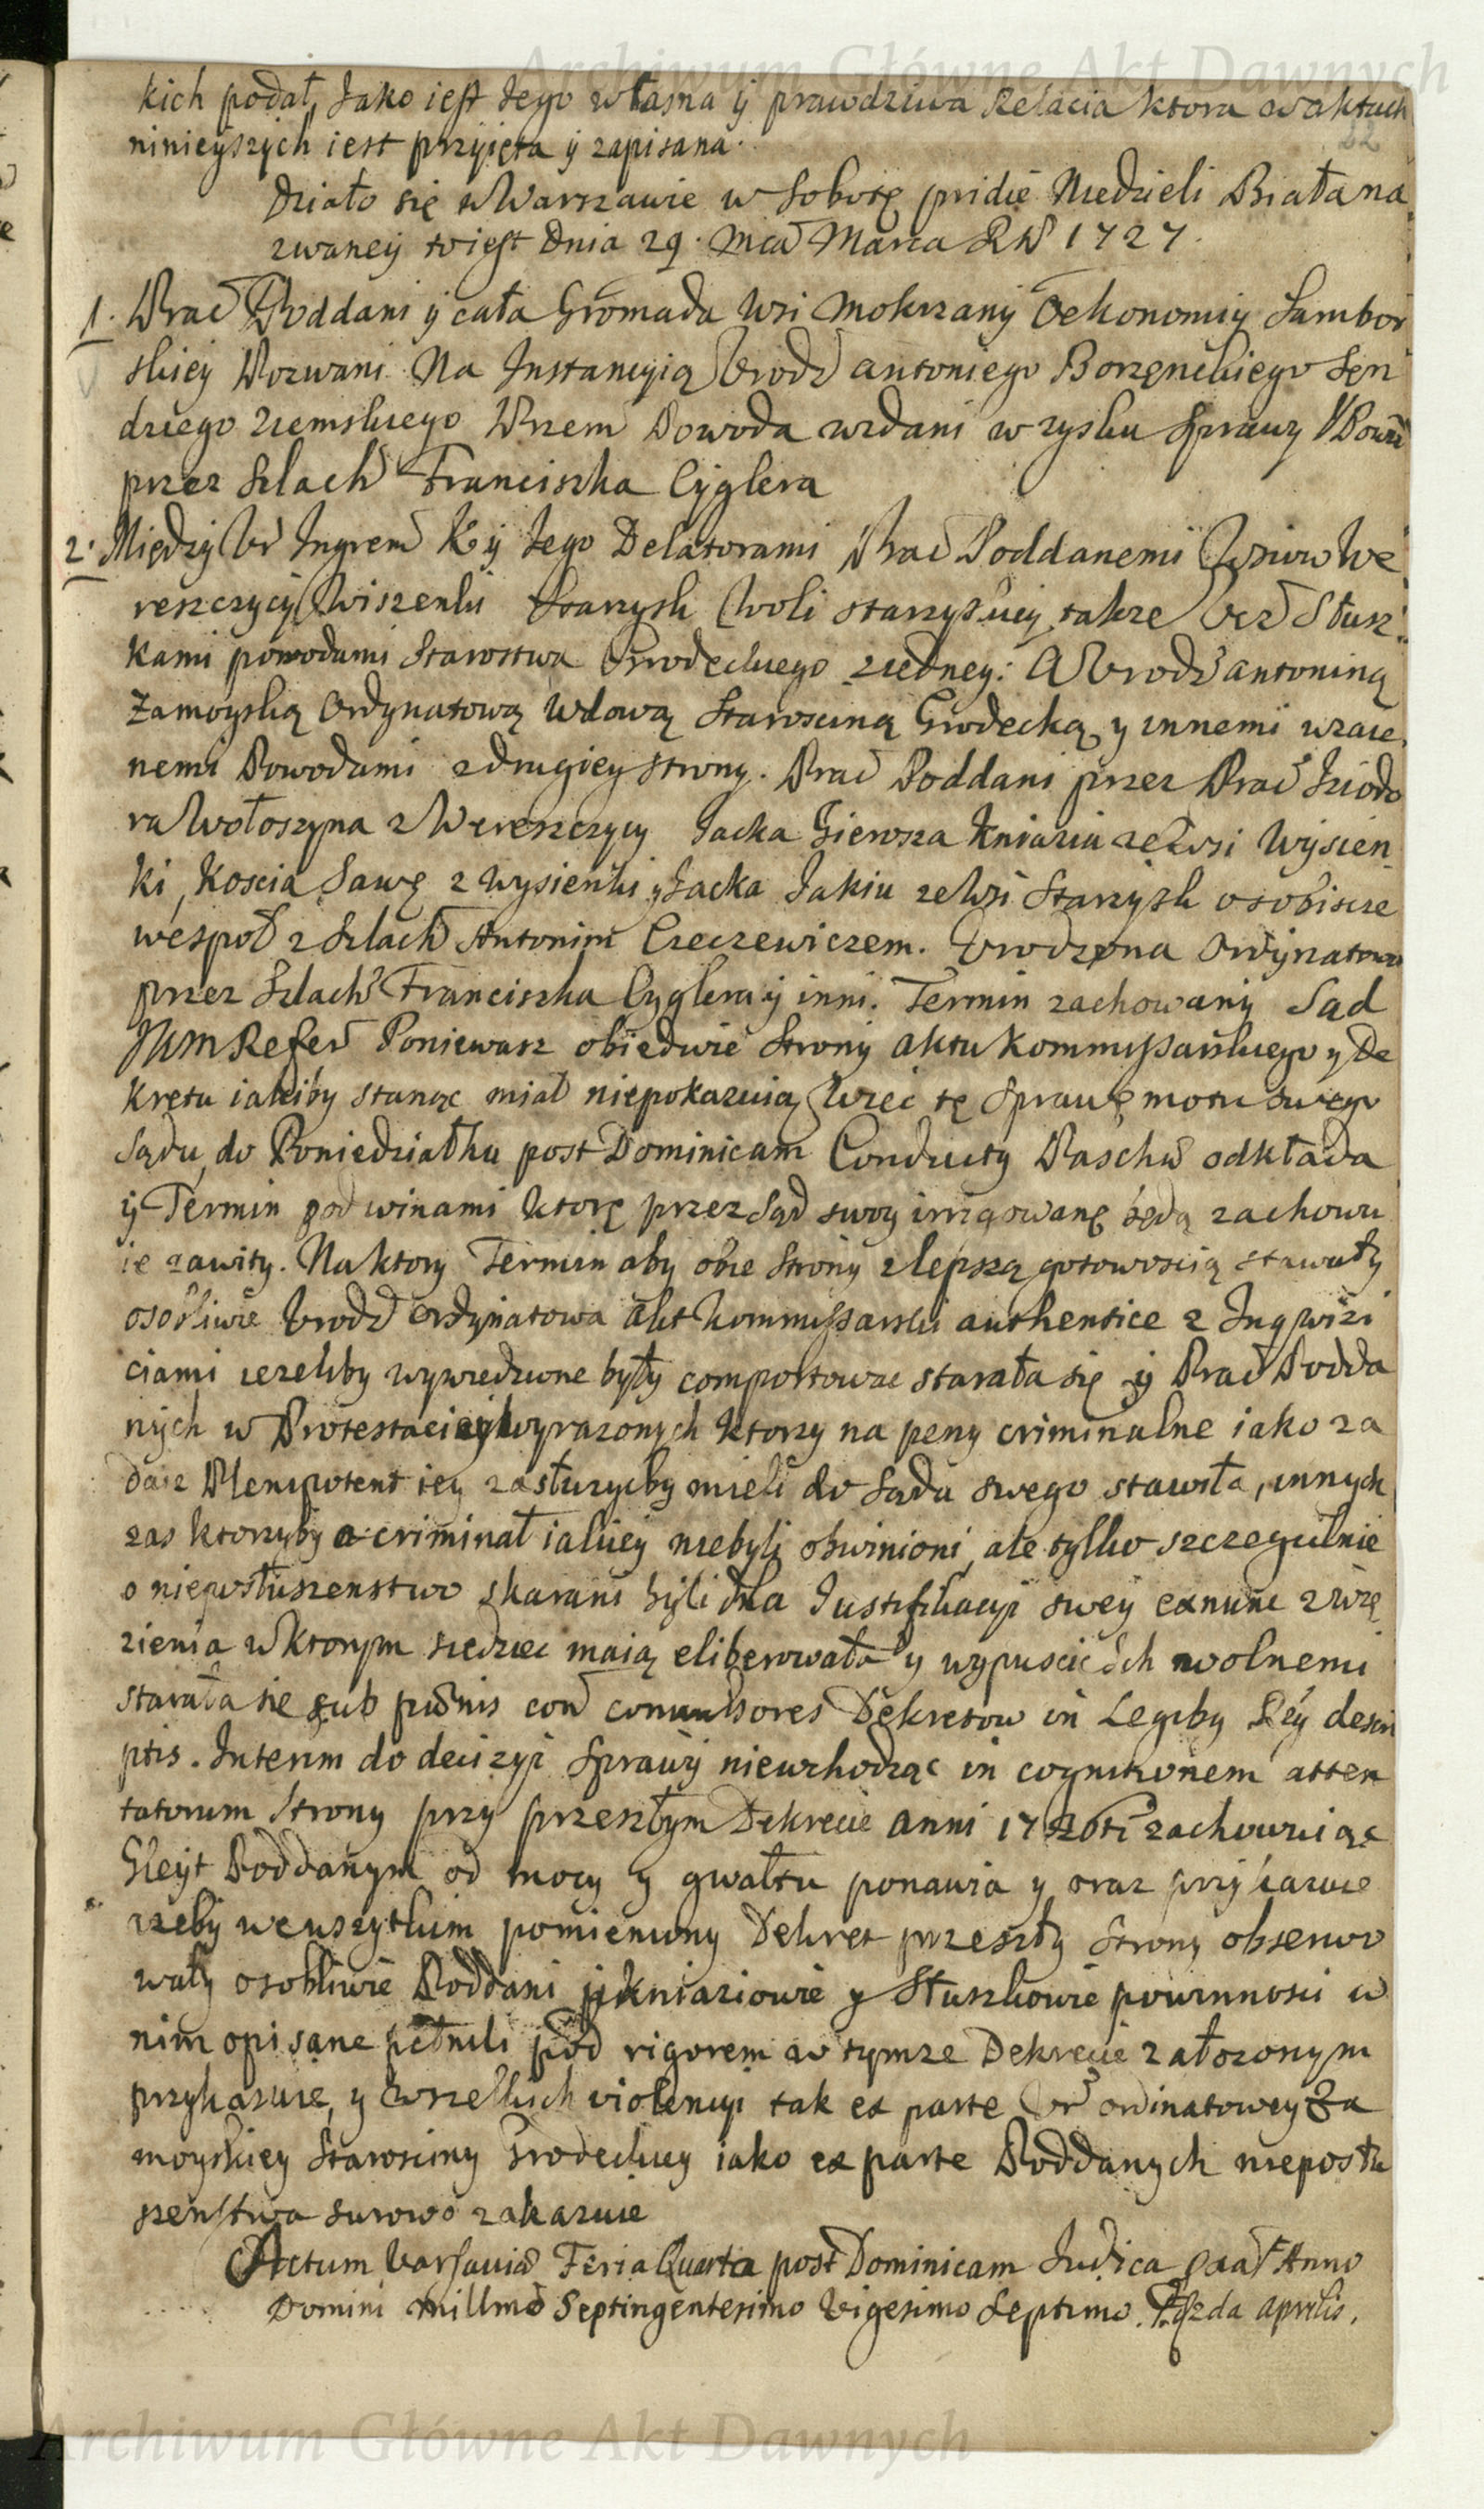 Archiwum Główne Akt Dawnych
kich podał, Jako iest Jego własna ÿ prawdziwa Relacia ktora w aktach
ninieyszych iest przyięta ÿ zapisana.
22
Działo się w Warszawie w Sobotę pridie Niedzieli Biała na
zwaneÿ to iest Dnia 29. Mca Marca R P 1727.
1. Prac Poddani ÿ cała Gromada Wsi Mokrzanÿ Oekonomiÿ Sambor
skieÿ Pozwani Na Instancyią Urodz Antoniego Borzęnckiego Sęn
dziego Ziemskiego Przem Powoda wzdani w zysku Sprawy Powod
przez Szlach Franciszka Cÿglera
2. Międzÿ Ur Ingrem K ÿ Jego Delatorami Prac Poddanemi Wsiow We
reszczycÿ Wiszenki Starzysk Woli starzyskiey także Ucz Słusz
kami powodami Starostwa Grodeckiego z iedney: A Urodz Antoniną
Zamoyską Ordynatową Wdową Starosciną Grodecką y innemi wzaie
nemi Powodami z drugiey strony. Prac Poddani przez Prac Iziodo
ra Wołoszyna z Wereszczycy Jacka Kniazia ze Wsi Wÿsien
ki, Koscia Sawę z Wysienki y Jacka Jakiu ze Wsi Starzysk osobiscie
wespoł z Szlach Antonim Czeczewiczem. Urodzona Ordÿnatowa
przez Szlach Franciszka Cyglera ÿ inni. Termin zachowanÿ Sąd
JKM Refer Poniewasz obiedwie Stronÿ aktu Kommissarskiego y De
kretu iakiby stanąc miał niepokazuią Więc tę Sprawę motu swego
Sądu, do Poniedziałku post Dominicam Conductÿ Pasche odkłada
ÿ Termin pod winami ktorę przez Sąd swoy irrogowanę będą zachowu
ie zawity. Na ktory Termin aby obie Stronÿ z lepszą gotowoscią stawały
osobliwie Urodz Ordÿnatowa Akt Kommissarski authentice z Inqwizi
ciami iezeliby wywiedzione byłÿ comportowac starała się ÿ Prac Podda
nÿch w Protestaciÿ wyrazonych ktorzy na peny criminalne iako za
daie Plenipotent iey zasłuzyliby mieli do Sądu swego stawiła, innych
zas ktorzyby o criminał iakieÿ niebyli obwinioni, ale tylko szczegulnie
o nieposłuszenstwo skarani bÿli dla Justifikacyi sweÿ exnunc z wię
zienia w ktorym siedziec maią eliberowała y wypuscic ich wolnemi
starała sie sub pœnis con convulsores Dekretow in Legiby Rey descri
ptis. Interim do decizyi Sprawÿ niewchodząc in cognitionem atten
tatorum Strony przy przeszłym Dekrecie Anni 1726ti zachowuiąc
Gleyt Poddanym od mocy y gwałtu ponawia y oraz przykazuie
zeby we wszytkim pomieniony Dekret przeszły Strony obserwo
wały osobliwie Poddani kniaziowie y Słuszkowie powinnosci w
nim opisane pełnili pod rigorem w tymze Dekrecie załozonym
przykazuie, y wszelkich violencyi tak ex parte Ur Ordinatowey Za
moyskiey Starosciny Grodeckiey iako ex parte Poddanych nieposłu
szenstwa surowo zakazuie
Actum Varsaviæ Feria Quarta post Dominicam Judica Anno
Domini Millmo Septingentesimo Vigesimo Septimo. 2da Aprilis.
Archiwum Główne Akt Dawnych